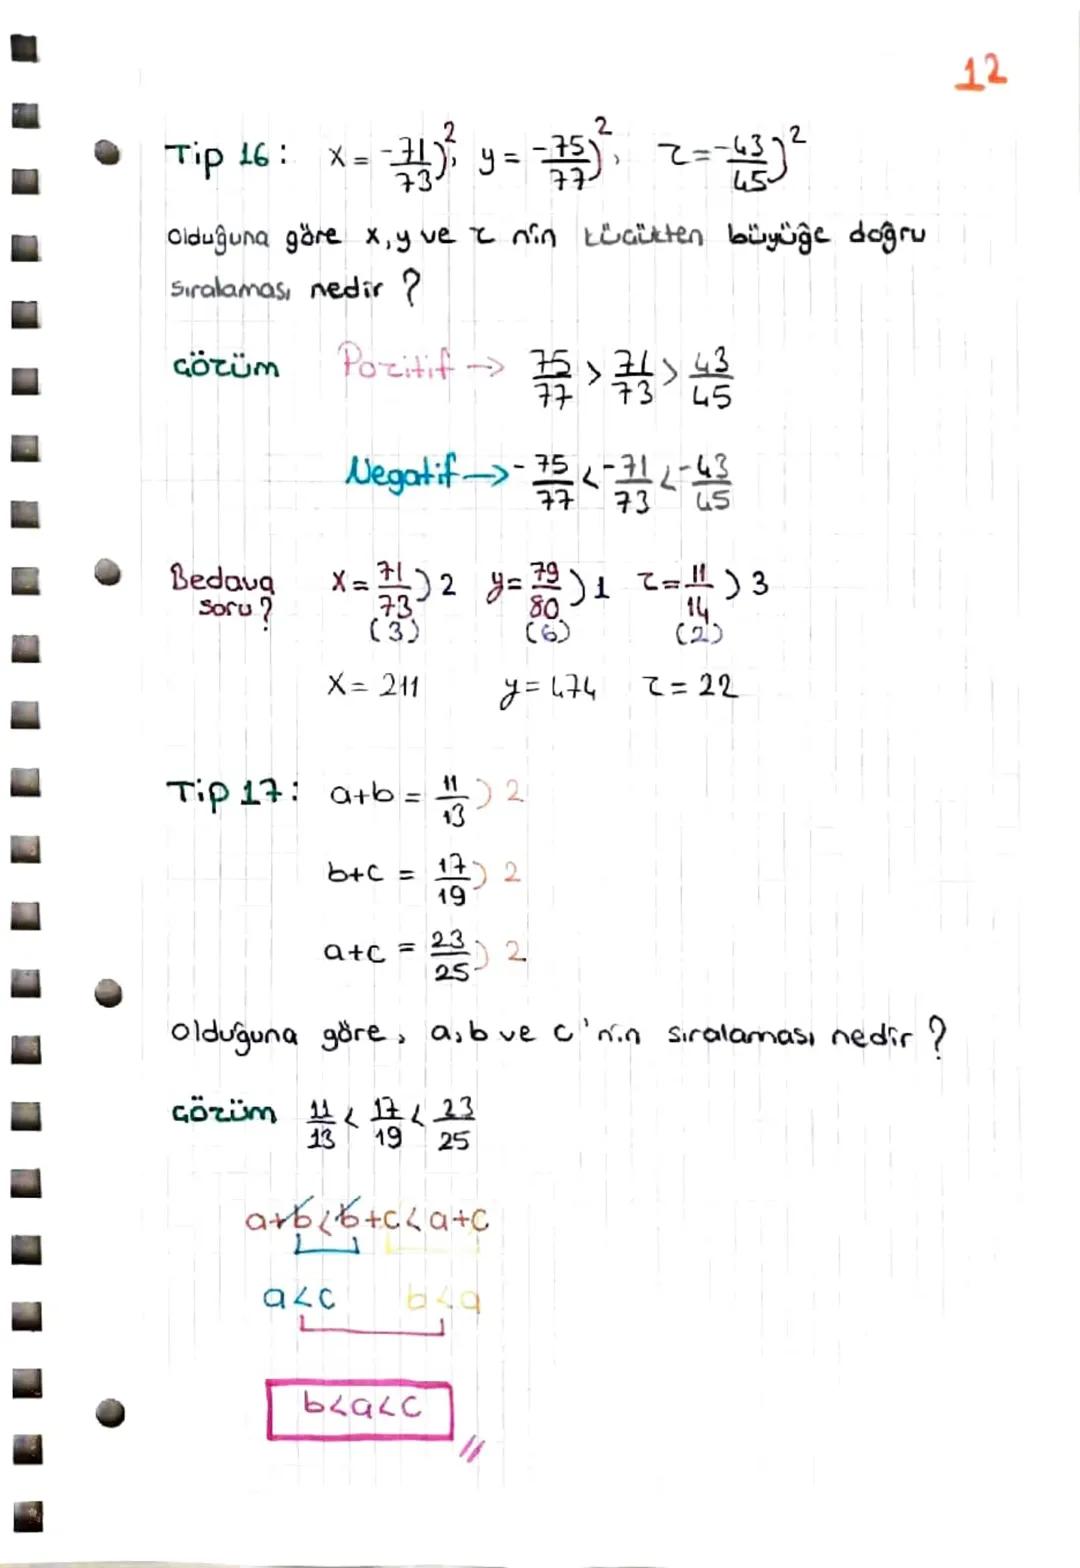 12
Tip 16: x = -71/73)², y = -75/77)², z = -43/45)²
olduğuna göre x, y ve z nin küçükten büyüğe doğru
sıralaması nedir ?
Çözüm Pozitif → 75/77 > 71/73 > 43/45
Negatif → -75/77 < -71/73 < -43/45
Bedava soru? x = 71/73 ) 2 y = 79/80 ) 1 z = 11/14 ) 3
(3) (6) (2)
x = 211 y = 474 z = 22
Tip 17: a+b = 11/13 ) 2
b+c = 17/19 ) 2
a+c = 23/25 ) 2
olduğuna göre, a, b ve c'nin sıralaması nedir ?
Çözüm 11/13 < 17/19 < 23/25
a+b < b+c < a+c
a<c b<a
b<a<c //